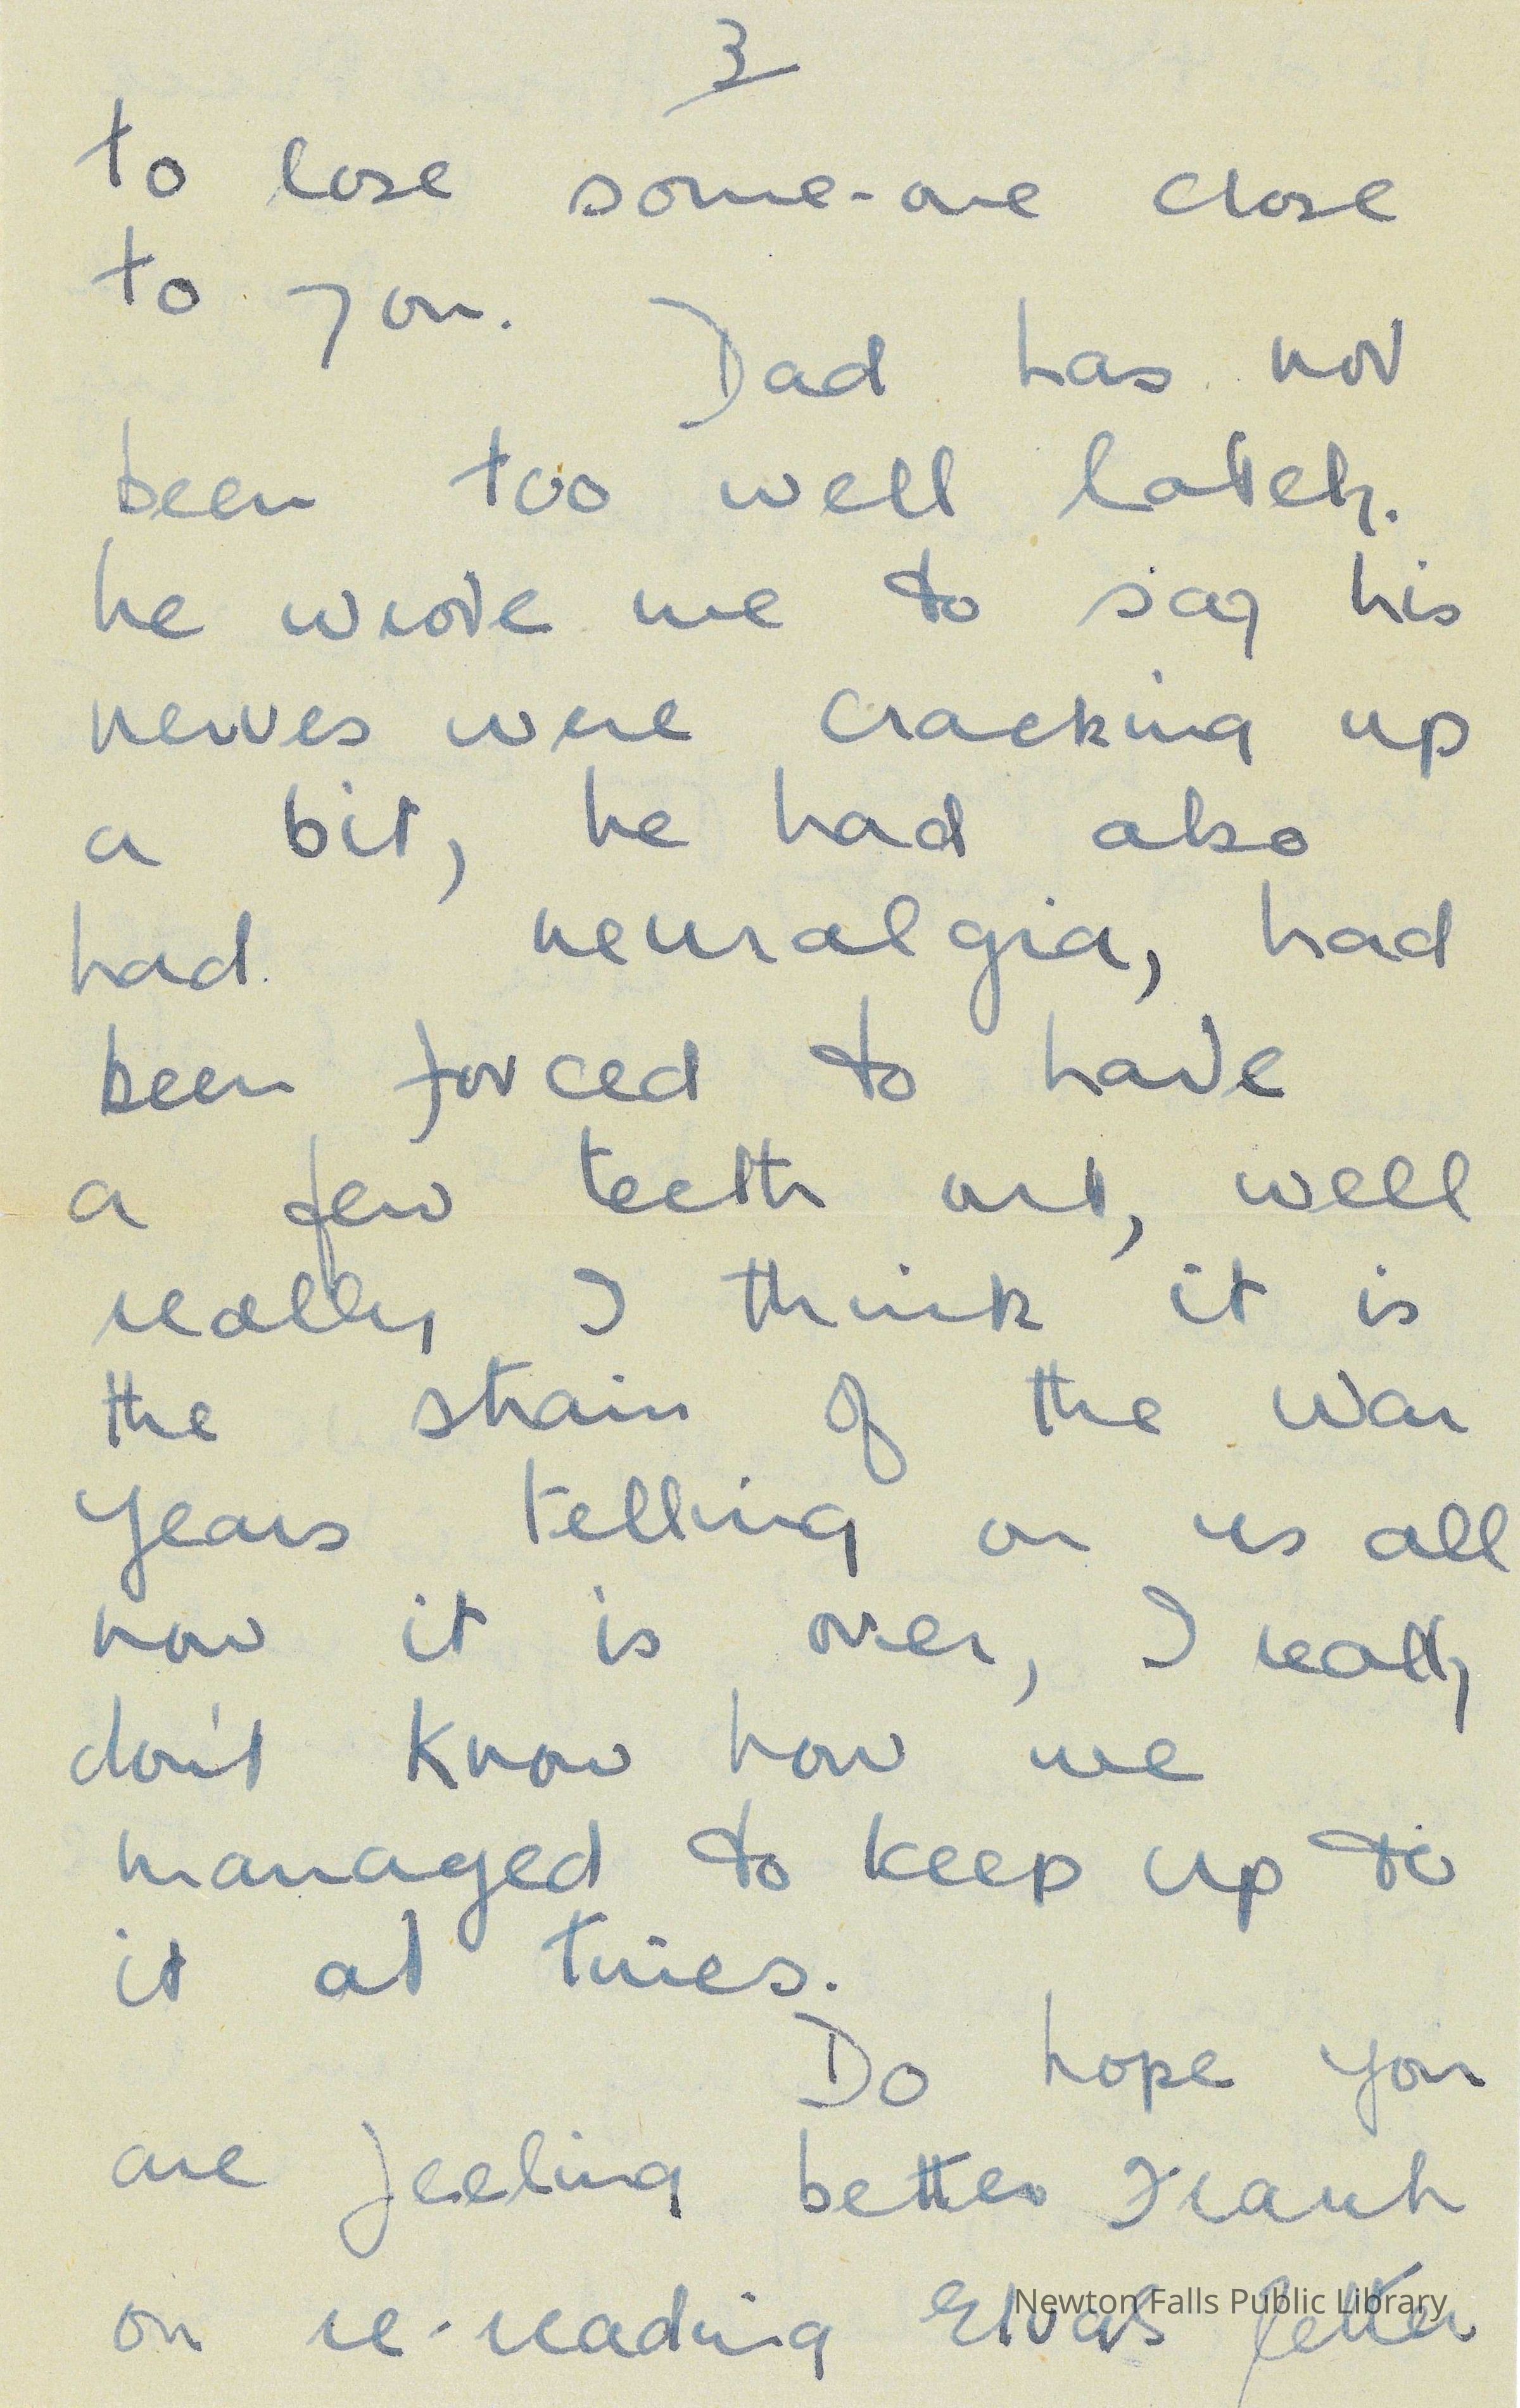 3
to lose some-one close
to you.
Dad has not
been too well lately.
he wrote me to say his
nerves were cracking up
a bit, he had also
had neuralgia, had
been forced to have
a few teeth out, well
really I think it is
the strain of the War
years telling on us all
now it is over, I really
don't know how we
managed to keep up to
it at times.
Do hope you
are feeling better Frank
on re-reading Elva's letter
Newton Falls Public Library